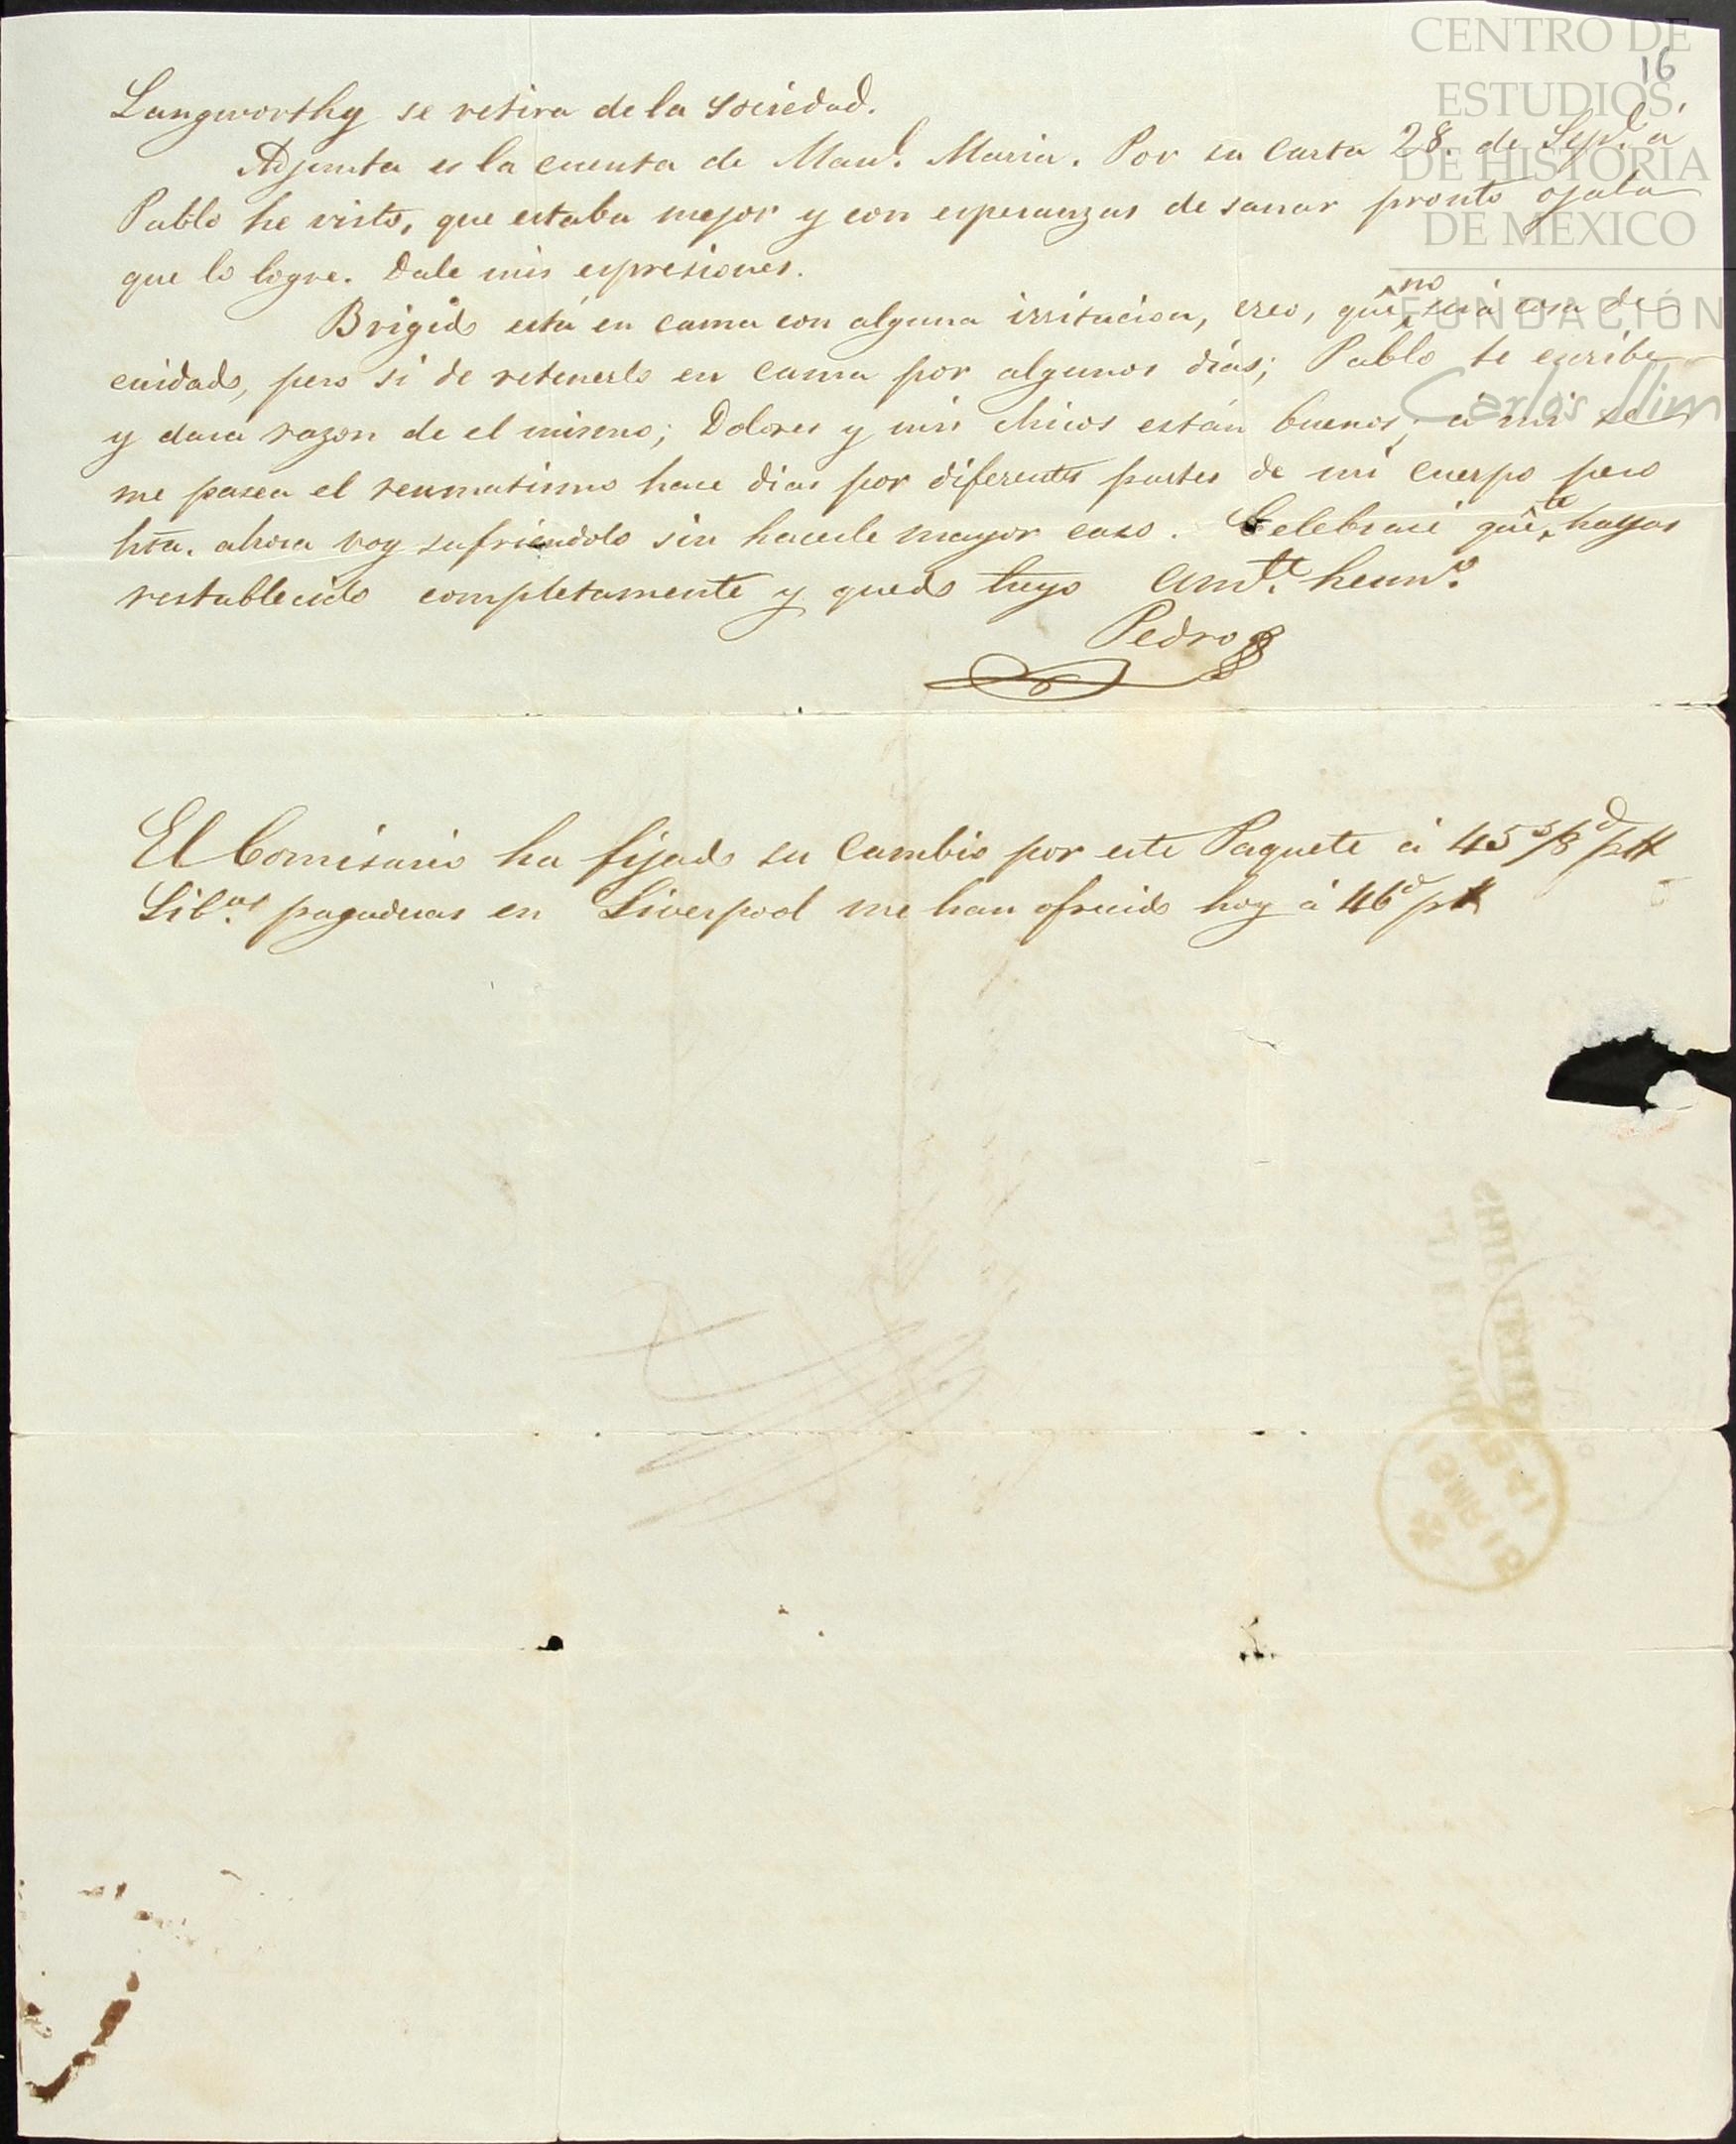 CENTRO DE
ESTUDIOS
DE HISTORIA
DE MÉXICO
FUNDACIÓN
Carlos Slim
16
Langworthy se retira de la sociedad.
Adjunta es la cuenta de Manl. Maria. Por su carta 28. de Sepe. á
Pablo he visto, que estaba mejor y con esperanzas de sanar pronto ojala
que lo logre. Dale mis espresiones.
Brigido está en cama con alguna irritacion, creo, que no será cosa de
cuidado, pero si de retenerlo en cama por algunos dias; Pablo te escribe
y dara razon de el mismo; Dolores y mis chicos están buenos; á mi se
me pasea el reumatismo hace dias por diferentes partes de mi cuerpo pero
hta. ahora voy sufriendolo sin hacerle mayor caso. Celebraré que te hayas
restablecido completamente y quedo tuyo amte. hermo.
Pedro
El Comisario ha fijado su Cambio por este Paquete á 45 3/8 d/p
Libras pagaderas en Liverpool me han ofrecido hoy á 46 d/p
SHIP LETTER
LIVERPOOL
1841